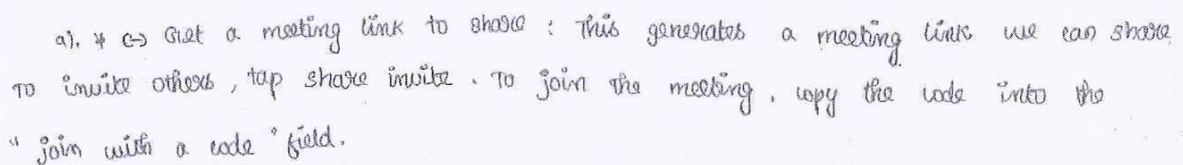 a). * ↔ Get a meeting link to share : This generates a meeting link we can share.
To invite others, tap share invite. To join the meeting, copy the code into the
"join with a code" field.